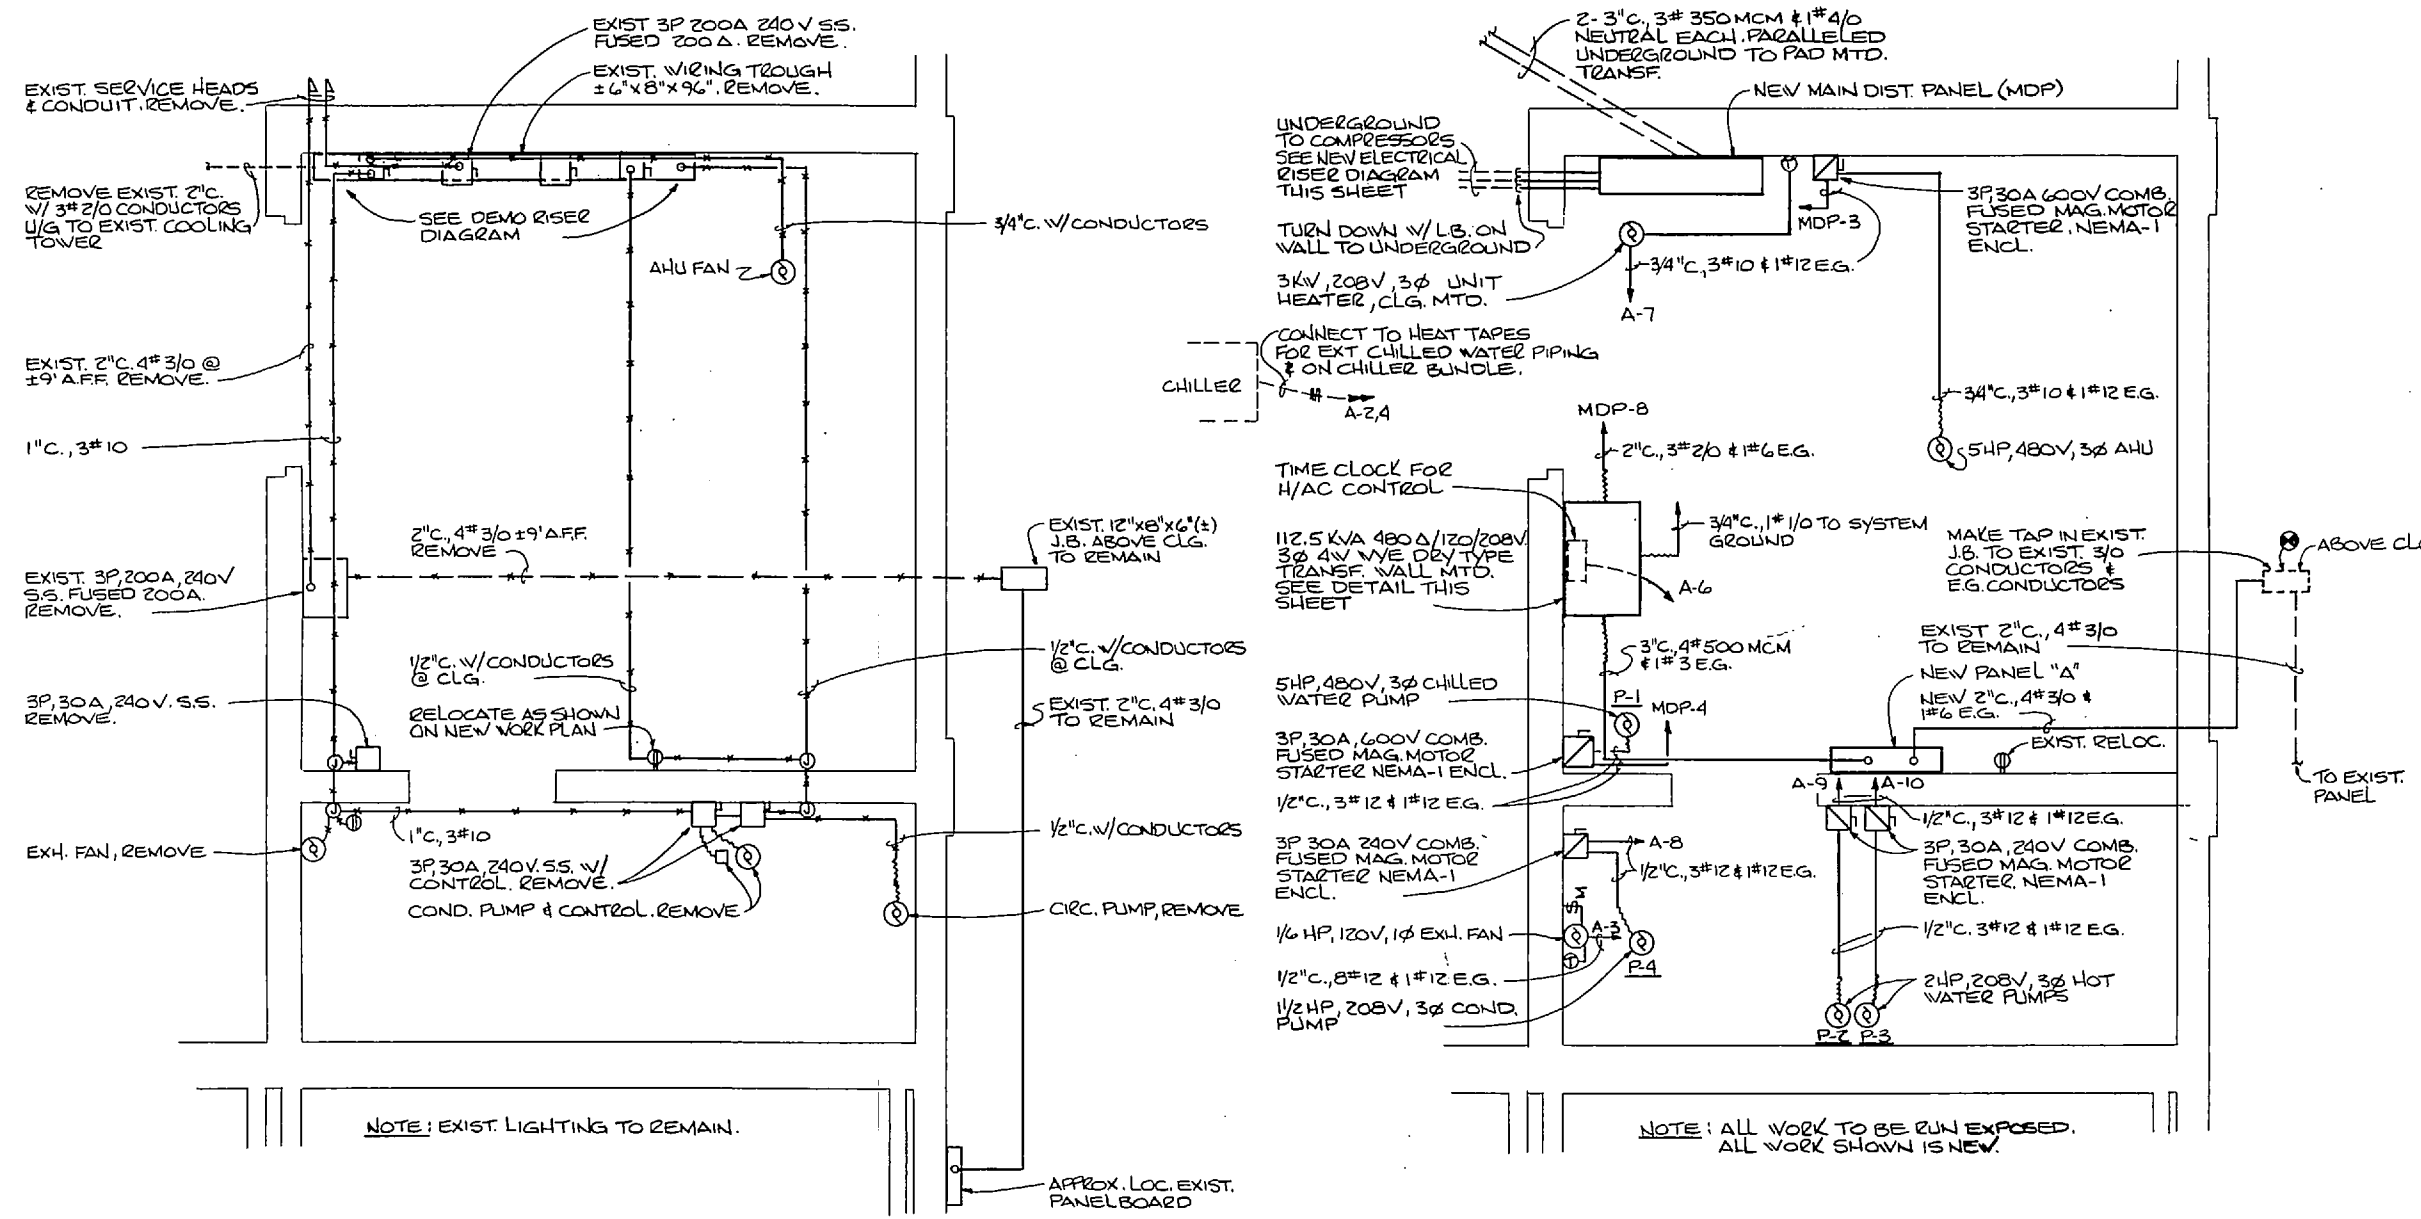 EXIST 3P 200A 240V S.S.
FUSED 200A. REMOVE.
EXIST. WIRING TROUGH
±6"X8"X96". REMOVE.
EXIST. SERVICE HEADS
& CONDUIT. REMOVE.
REMOVE EXIST. 2"C.
W/ 3#2/0 CONDUCTORS
U/G TO EXIST. COOLING
TOWER
SEE DEMO RISER
DIAGRAM
3/4"C. W/CONDUCTORS
AHU FAN
EXIST. 2"C. 4#3/0 @
±9' A.F.F. REMOVE.
1"C., 3#10
2"C., 4#3/0 ±9' A.F.F.
REMOVE
EXIST. 12"X8"X6"(±)
J.B. ABOVE CLG.
TO REMAIN
EXIST. 3P, 200A, 240V
S.S. FUSED 200A.
REMOVE.
1/2"C. W/CONDUCTORS
@ CLG.
1/2"C. W/CONDUCTORS
@ CLG.
3P, 30A, 240V. S.S.
REMOVE.
RELOCATE AS SHOWN
ON NEW WORK PLAN
EXIST. 2"C. 4#3/0
TO REMAIN
1"C., 3#10
1/2"C. W/CONDUCTORS
EXH. FAN, REMOVE
3P, 30A, 240V. S.S. W/
CONTROL. REMOVE.
COND. PUMP & CONTROL. REMOVE
CIRC. PUMP, REMOVE
NOTE: EXIST. LIGHTING TO REMAIN.
APPROX. LOC. EXIST.
PANELBOARD
2-3"C., 3#350 MCM & 1#4/0
NEUTRAL EACH. PARALLELED
UNDERGROUND TO PAD MTD.
TRANSF.
NEW MAIN DIST. PANEL (MDP)
UNDERGROUND
TO COMPRESSORS
SEE NEW ELECTRICAL
RISER DIAGRAM
THIS SHEET
TURN DOWN W/ L.B. ON
WALL TO UNDERGROUND
T
MDP-3
3P, 30A 600V COMB.
FUSED MAG. MOTOR
STARTER, NEMA-1
ENCL.
3/4"C., 3#10 & 1#12 E.G.
3KW, 208V, 3Ø UNIT
HEATER, CLG. MTD.
A-7
CONNECT TO HEAT TAPES
FOR EXT. CHILLED WATER PIPING
& ON CHILLER BUNDLE.
CHILLER
A-2,4
3/4"C., 3#10 & 1#12 E.G.
5HP, 480V, 3Ø AHU
MDP-8
2"C., 3#2/0 & 1#6 E.G.
TIME CLOCK FOR
H/AC CONTROL
3/4"C., 1#1/0 TO SYSTEM
GROUND
112.5 KVA 480Δ/120/208V
3Ø 4W WYE DRY TYPE
TRANSF. WALL MTD.
SEE DETAIL THIS
SHEET
A-6
MAKE TAP IN EXIST.
J.B. TO EXIST. 3/0
CONDUCTORS &
E.G. CONDUCTORS
ABOVE CLG
3"C., 4#500 MCM
& 1#3 E.G.
EXIST 2"C., 4#3/0
TO REMAIN
NEW PANEL "A"
NEW 2"C., 4#3/0 &
1#6 E.G.
5HP, 480V, 3Ø CHILLED
WATER PUMP
P-1
MDP-4
3P, 30A, 600V COMB.
FUSED MAG. MOTOR
STARTER NEMA-1 ENCL.
EXIST. RELOC.
TO EXIST.
PANEL
A-9
A-10
1/2"C., 3#12 & 1#12 E.G.
1/2"C., 3#12 & 1#12 E.G.
3P 30A 240V COMB.
FUSED MAG. MOTOR
STARTER NEMA-1
ENCL.
A-8
1/2"C., 3#12 & 1#12 E.G.
3P, 30A, 240V COMB.
FUSED MAG. MOTOR
STARTER. NEMA-1
ENCL.
S M
1/6 HP, 120V, 1Ø EXH. FAN
A-3
T
P-4
1/2"C. 3#12 & 1#12 E.G.
1/2"C., 8#12 & 1#12 E.G.
1 1/2 HP, 208V, 3Ø COND.
PUMP
2HP, 208V, 3Ø HOT
WATER PUMPS
P-2
P-3
NOTE: ALL WORK TO BE RUN EXPOSED.
ALL WORK SHOWN IS NEW.